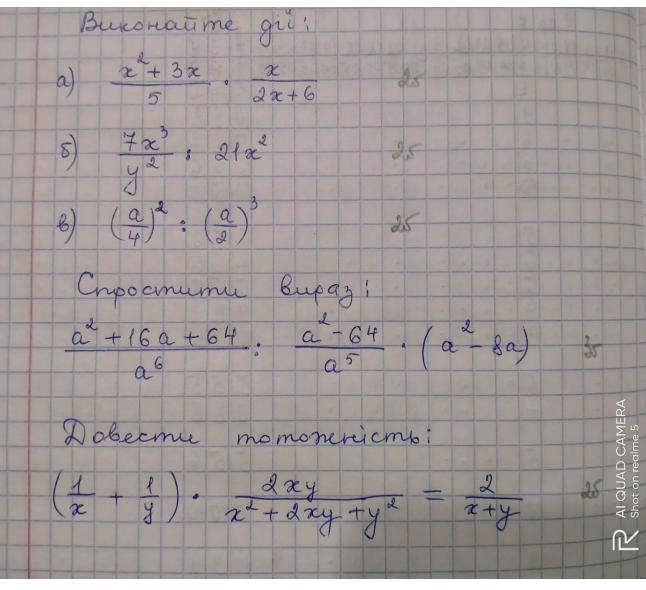 Виконайте дії:
а) (x² + 3x)/5 · x/(2x+6) 2б
б) 7x³/y² : 21x² 2б
в) (a/4)² : (a/2)³ 2б
Спростити вираз:
(a² + 16a + 64)/a⁶ : (a² - 64)/a⁵ · (a² - 8a)
Довести тотожність:
(1/x + 1/y) · 2xy/(x² + 2xy + y²) = 2/(x+y) 2б
AI QUAD CAMERA
Shot on realme 5